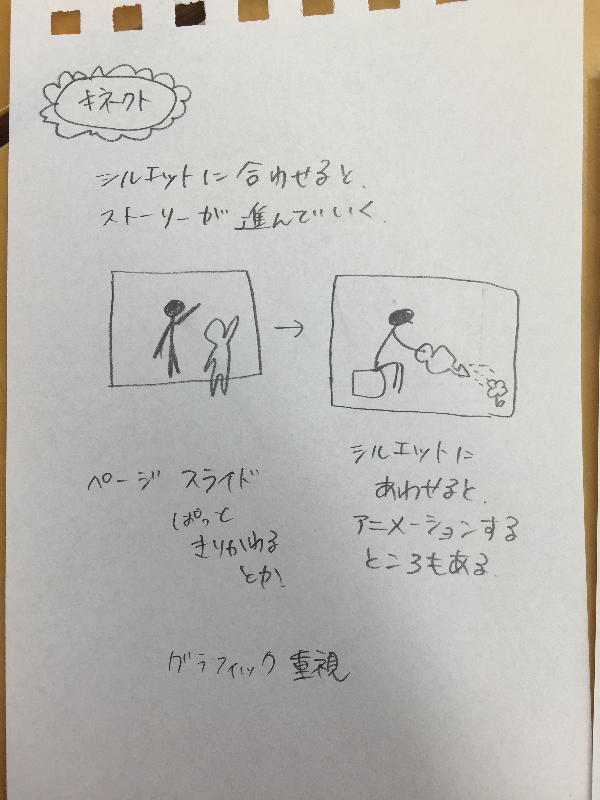 キネクト
シルエットに合わせると、
ストーリーが進んでいく、
→
ページ スライド
ぱっと
きりかわる
とか、
シルエットに
あわせると、
アニメーションする
ところもある、
グラフィック重視